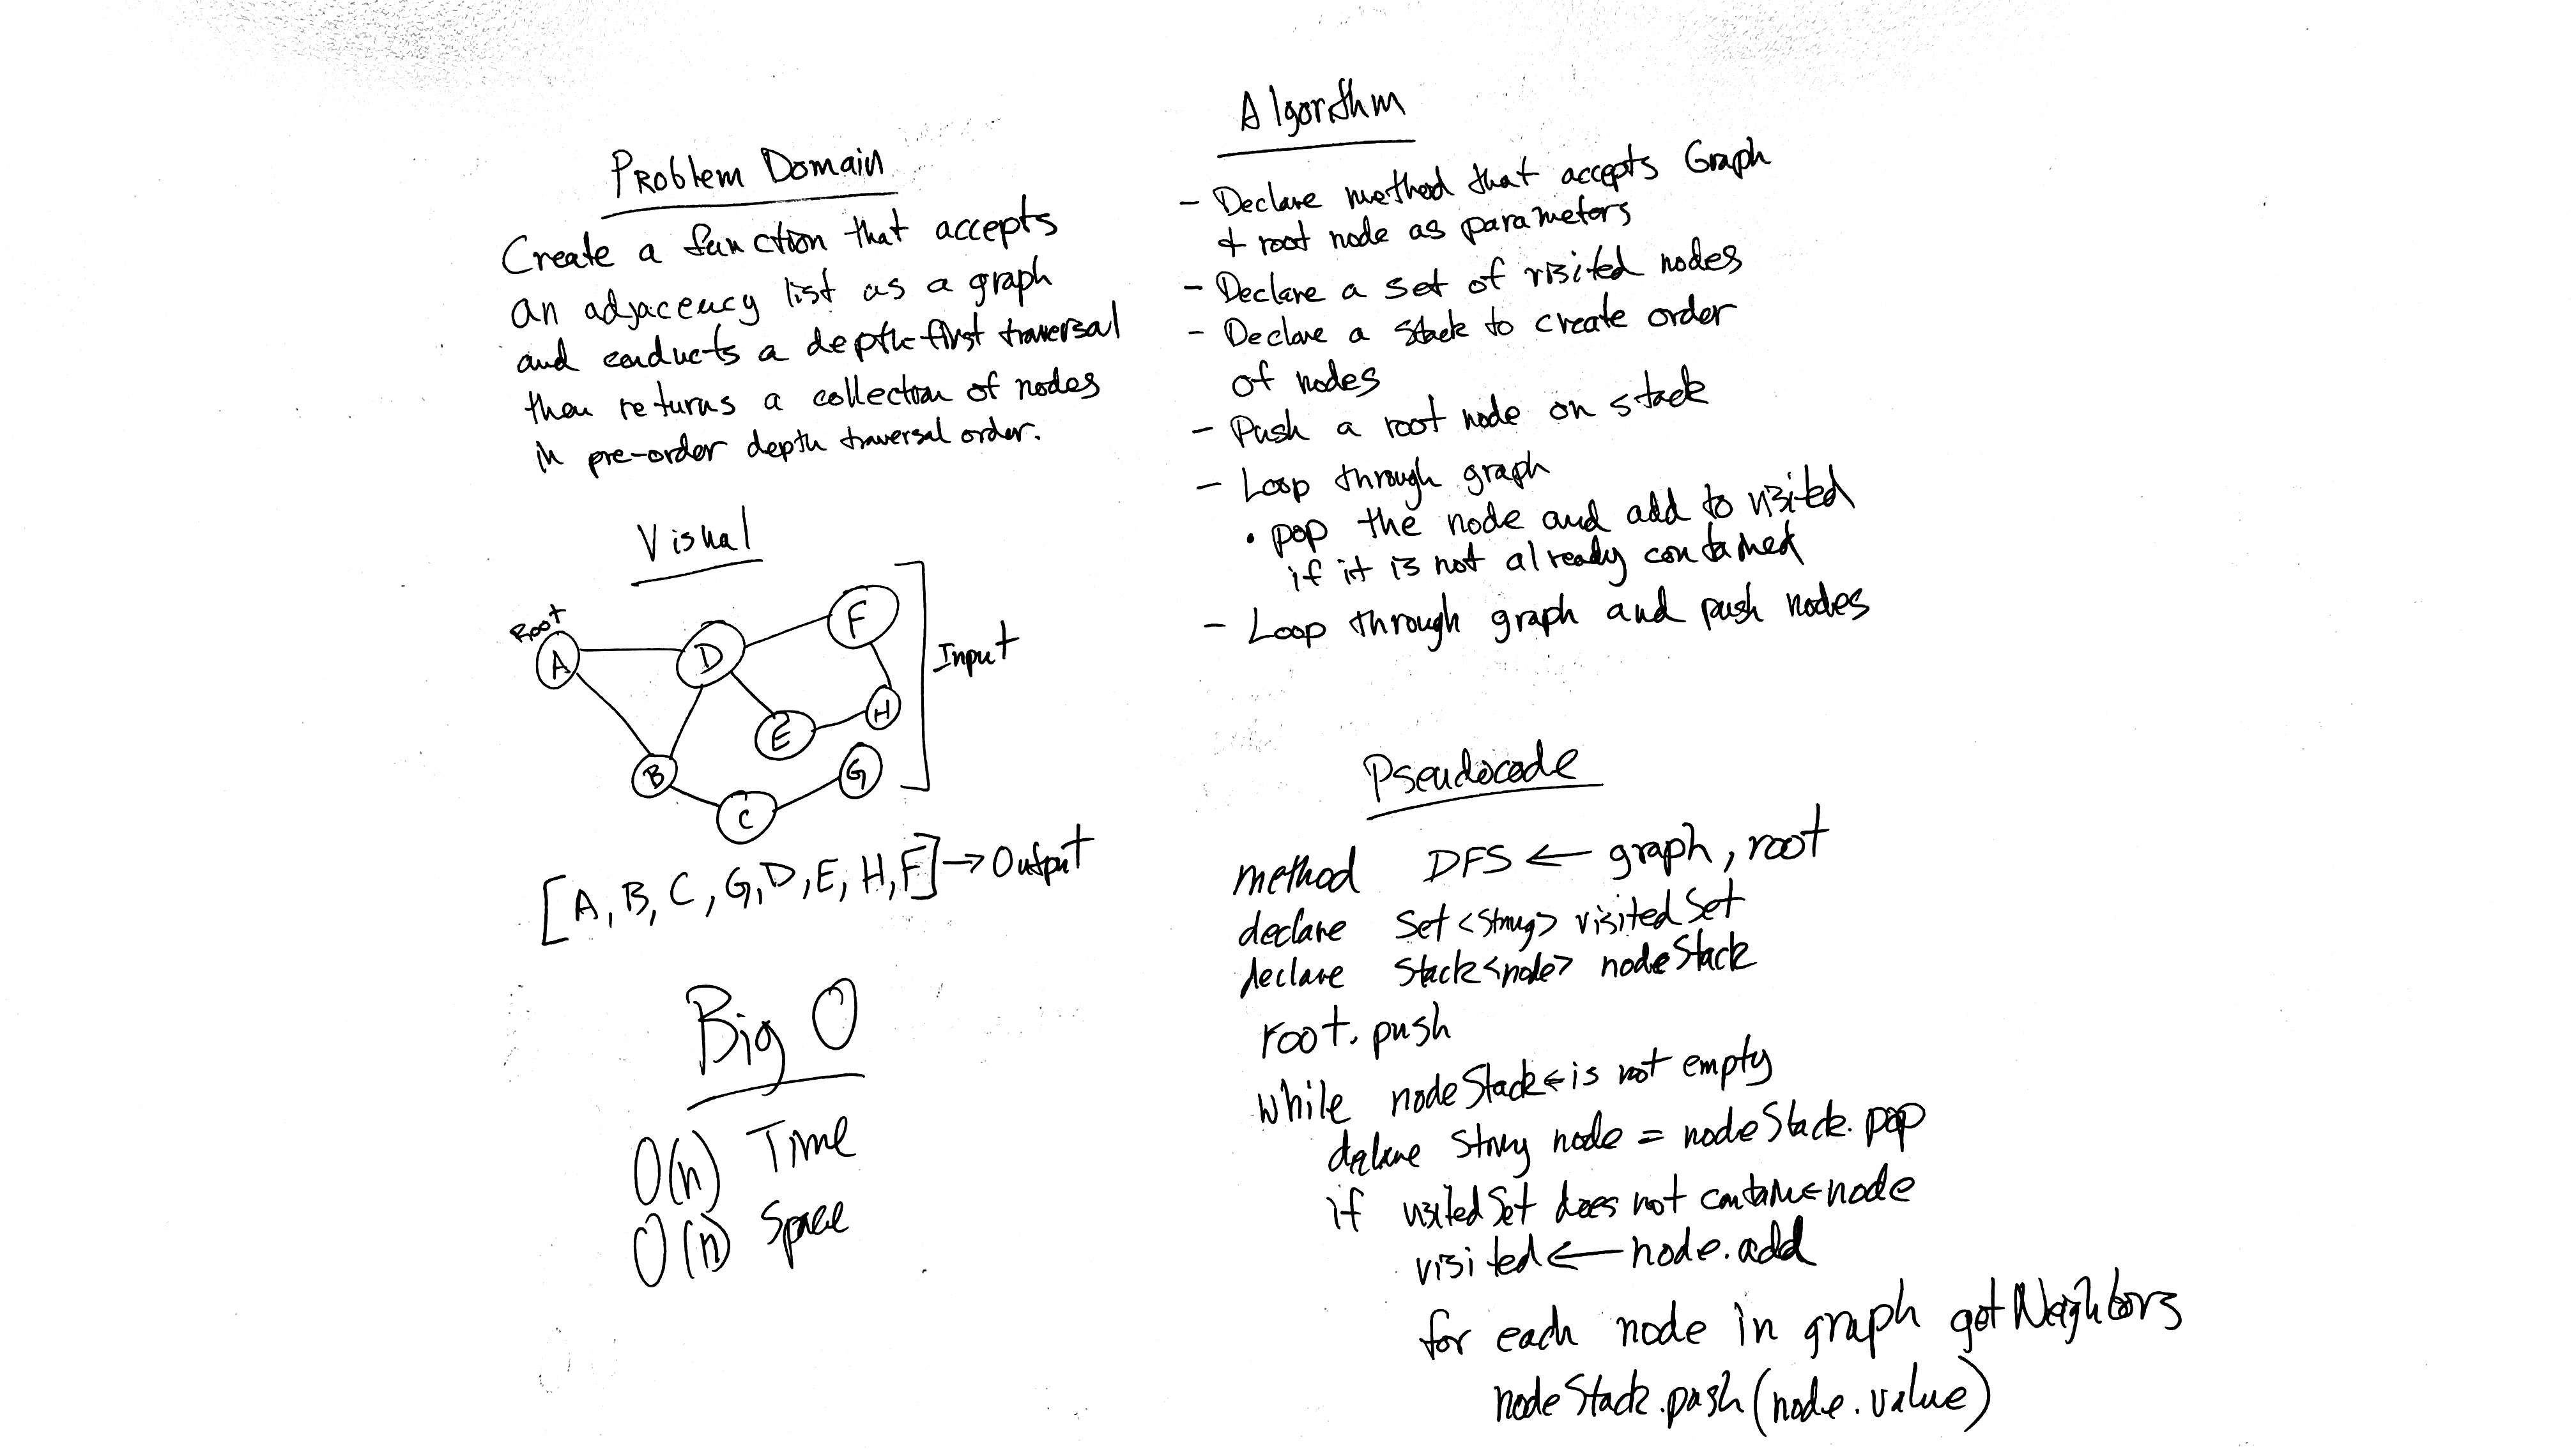 Problem Domain
Create a function that accepts
an adjacency list as a graph
and conducts a depth-first traversal
then returns a collection of nodes
in pre-order depth traversal order.
Visual
Root
A
D
F
Input
H
E
B
G
C
[A, B, C, G, D, E, H, F] → Output
Big O
O(n) Time
O(n) Space
Algorithm
- Declare method that accepts Graph
+ root node as parameters
- Declare a set of visited nodes
- Declare a stack to create order
of nodes
- Push a root node on stack
- Loop through graph
• pop the node and add to visited
if it is not already contained
- Loop through graph and push nodes
Pseudocode
method DFS ← graph, root
declare Set<String> visitedSet
declare Stack<node> nodeStack
root.push
while nodeStack ← is not empty
declare String node = nodeStack.pop
if visitedSet does not contain ← node
visited ← node.add
for each node in graph getNeighbors
nodeStack.push(node.value)